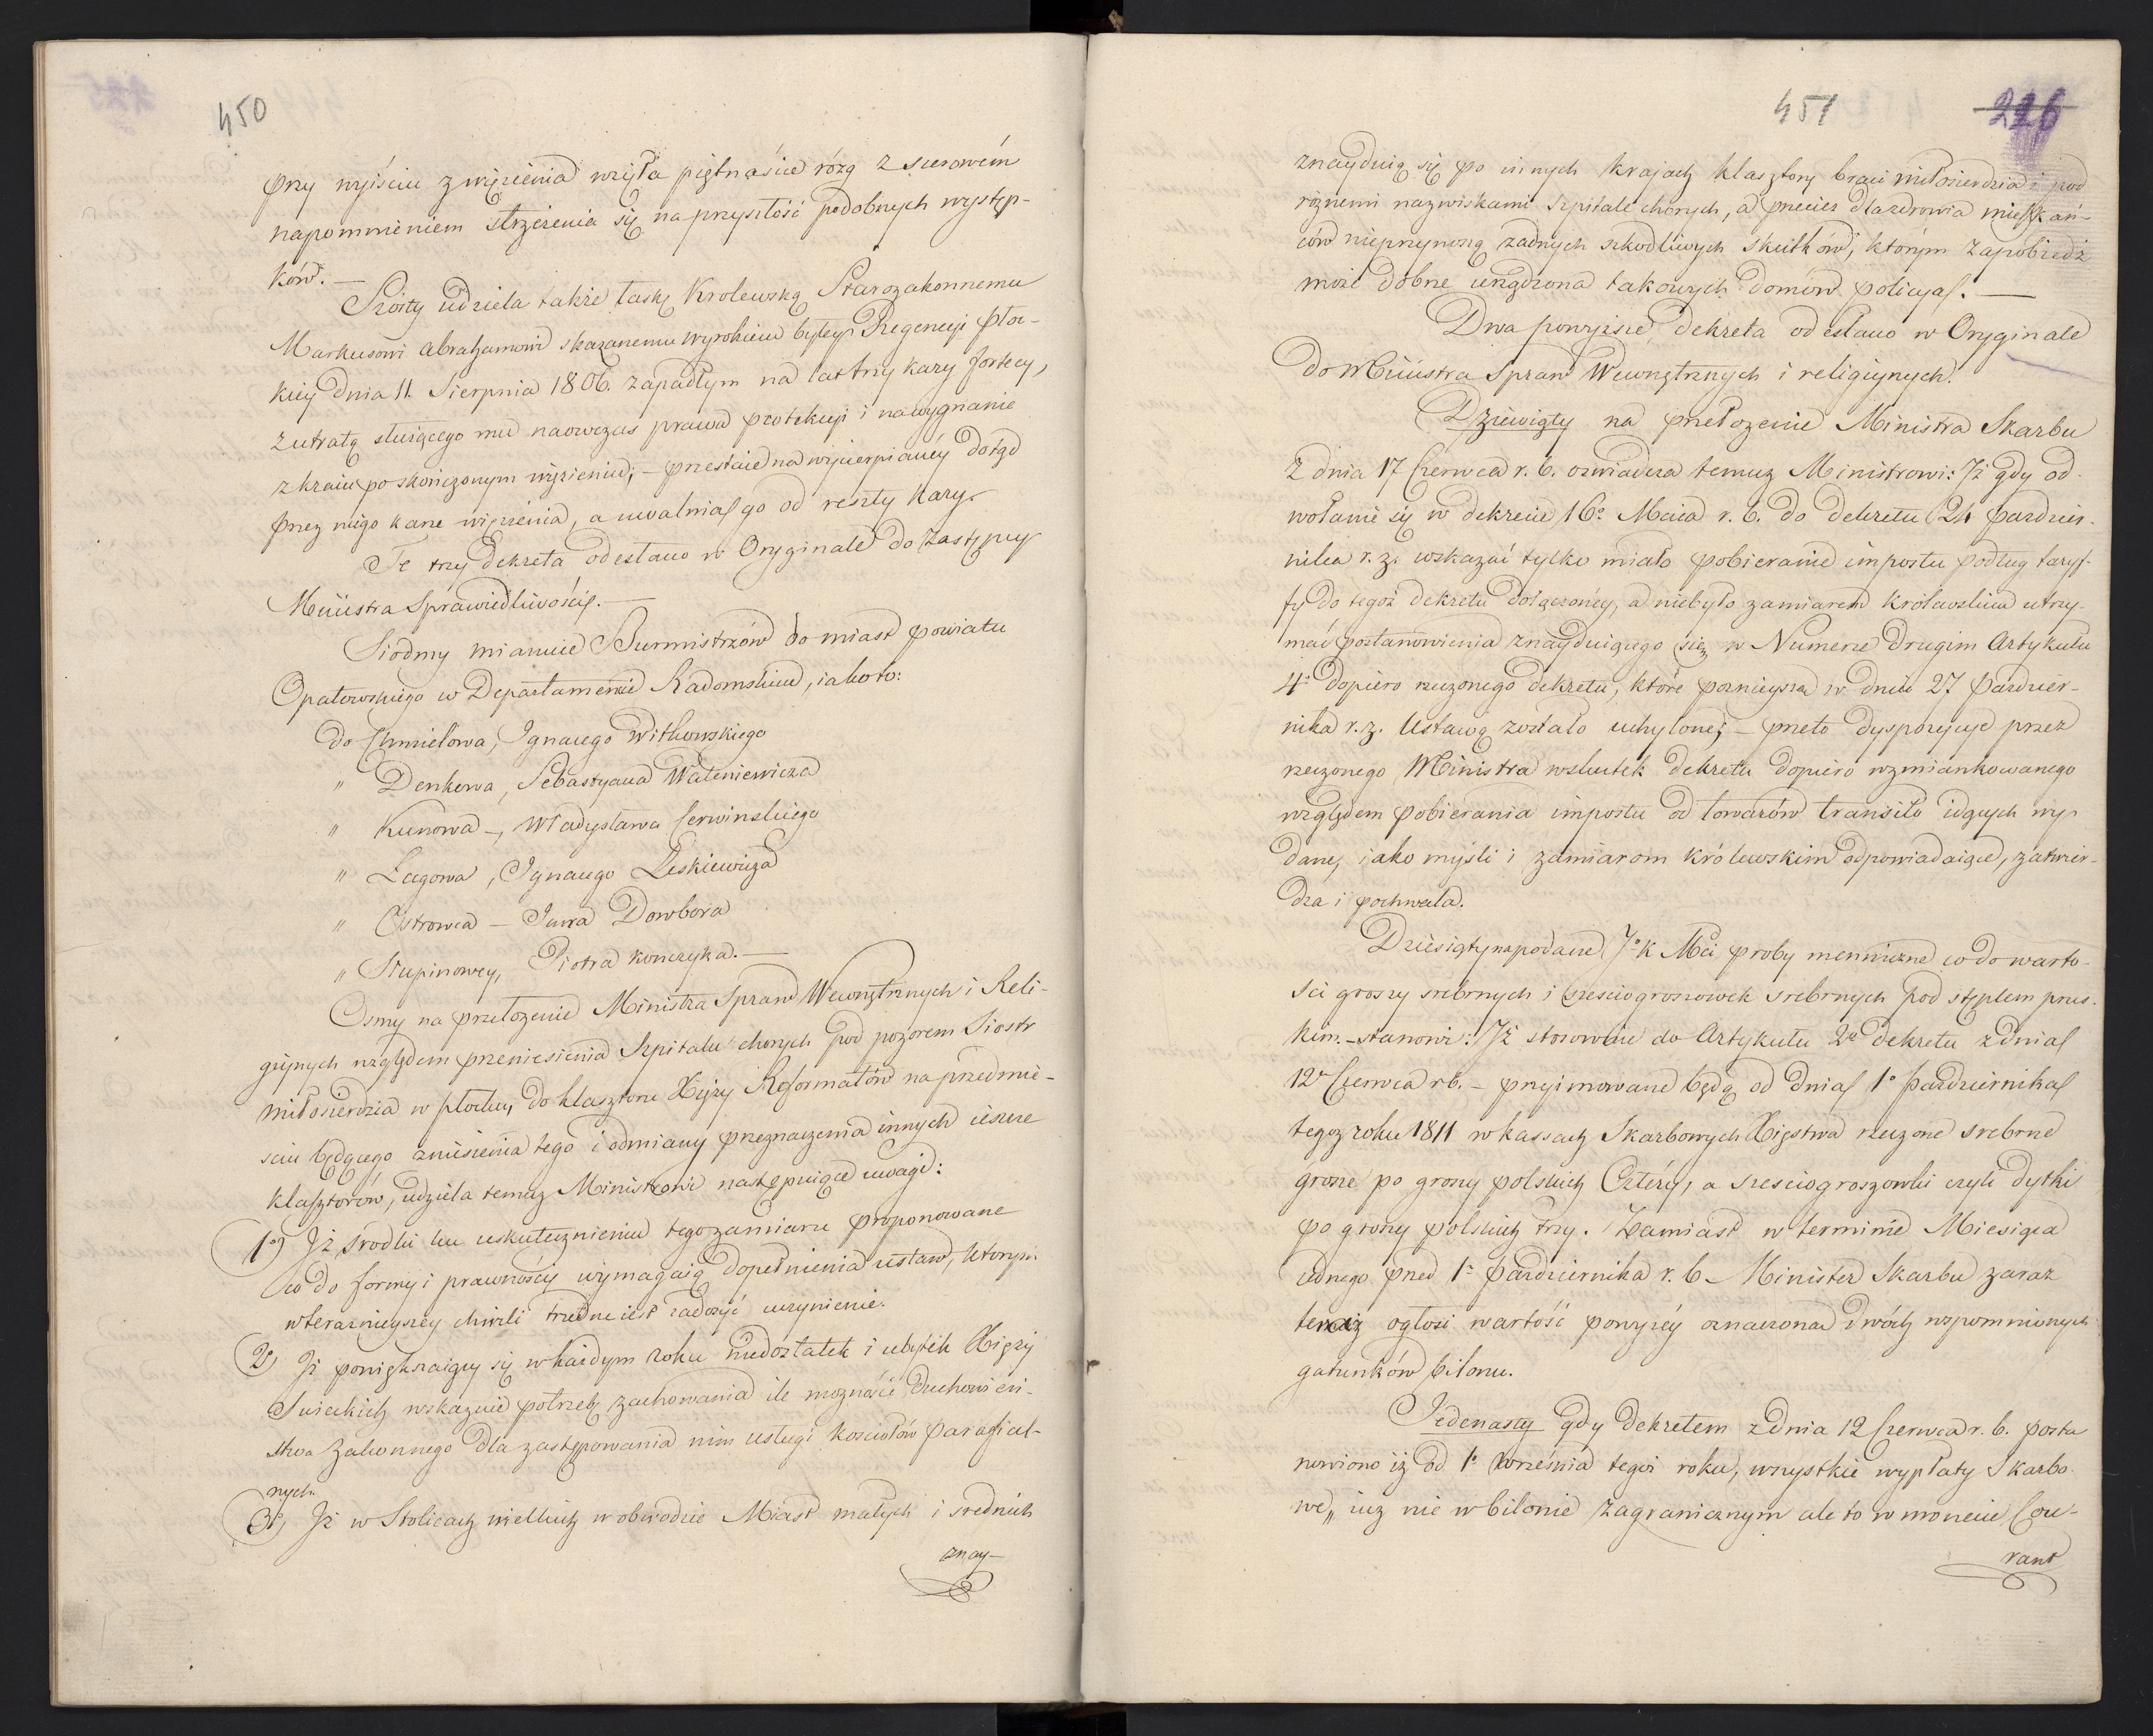 450
przy wyiściu z więzienia wzięła piętnaście rózg z surowém
napomnieniem strzeżenia się na przyszłość podobnych występ-
ków. —
Szósty udziela także łaskę Krolewską Starozakonnemu
Markusowi Abrahamowi skazanemu wyrokiem byłey Regencyi płoc-
kiey dnia 11. Sierpnia 1806. zapadłym na lat trzy kary fortecy,
z utratą służącego mu naowczas prawa protekcyi i na wygnanie
z kraiu po skończonym więzieniu; — przestaie na wycierpianéy dotąd
przez niego karze więzienia, a uwalnia go od reszty kary.
Te trzy dekreta odesłano w Oryginale do Zastępcy
Ministra Sprawiedliwości. —
Siodmy mianuie Burmistrzów do miast powiatu
Opatowskiego w Departamencie Radomskim, iako to:
do Chmielowa, Ignacego Witkowskiego
" Denkowa, Sebastyana Waleniewicza
" Kunowa —, Władysława Cerwinskiego
" Łagowa, Ignacego Leskiewicza
" Ostrowca — Jana Dowbora
" Słupinowey, Piotra Konczyka. —
Osmy na przełożenie Ministra Spraw Wewnętrznych i Reli-
giynych względem przeniesienia Szpitalu chorych pod pozorem Siostr
miłosierdzia w płocku, do klasztoru Xięży Reformatów na przedmie-
sciu będącego zniesienia tego i odmiany przeznaczenia innych ieszcze
klasztorów, udziela temuz Ministrowi następuiące uwagi:
1º) Iż środki ku uskutecznieniu tego zamiaru proponowane
co do formy i prawności wymagaią dopełnienia ustaw, ktorym
w teraznieyszey chwili trudne iest zadosyć uczynienie.
2º) Iż powiększaiący się w każdym roku niedostatek i ubytek Xięży
Swieckich wskazuie potrzebę zachowania ile możności Duchowień-
stwa Zakonnego dla zastępowania nim usługi kosciołów parafial-
nych.
3º) Iż w Stolicach wielkich w obwodzie Miast małych i srednich
znay-
451 226
znayduią się po innych krajach klasztory braci miłosierdzia i pod
rożnemi nazwiskami Szpitale chorych, a przecież dla zdrowia mieszkań-
ców nieprzynoszą żadnych szkodliwych skutków, którym zapobiedz
może dobrze urządzona takowych domów policya. —
Dwa powyższe dekreta odesłano w Oryginale
do Ministra Spraw Wewnętrznych i religiynych.
Dziewiąty na przełozenie Ministra Skarbu
z dnia 17 Czerwca r. b. oswiadcza temuz Ministrowi: Iż gdy od-
wołanie się w dekrecie 16º Maia r. b. do dekretu 24 pazdzier-
nika r. z. wskazać tylko miało pobieranie impostu podług taryf-
fy do tegoż dekretu dołączoney, a niebyło zamiarem krolewskim utrzy-
mać postanowienia znayduiącego się w Numerze Drugim Artykułu
4º dopiero rzeczonego dekretu, które poznieyszą w dniu 27 pazdzier-
nika r. z. Ustawą zostało uchylone; — przeto dyspozycye przez
rzeczonego Ministra wskutek dekretu dopiero wzmiankowanego
względem pobierania impostu od towarów transito idących wy-
dane, iako myśli i zamiarom królewskim odpowiadaiące, zatwier-
dza i pochwala.
Dziesiąty na podane J. K. Mci proby mennicze co do warto-
sci groszy srebrnych i szesciogroszowek srebrnych pod stęplem prus-
kim. — stanowi: Iż stosownie do Artykułu 2º dekretu z dnia
12º Czerwca r. b. — przyimowane będą od dnia 1º pazdziernika
tegoz roku 1811 w kassach Skarbowych Xięstwa rzeczone srebrne
grosze po groszy polskich Cztéry, a szesciogroszowki czyli dytki
po groszy polskich trzy. Zamiast w terminie Miesiąca
iednego przed 1º pazdziernika r. b. Minister Skarbu zaraz
teraz ogłosi wartość powyżéy oznaczoną dwóch wspomnionych
gatunków bilonu.
Jedenasty gdy dekretem z dnia 12 Czerwca r. b. posta-
nowiono iż od 1º Września tegoż roku, wszystkie wypłaty Skarbo-
we, iuż nie w bilonie zagranicznym ale to w monecie Cou-
rant